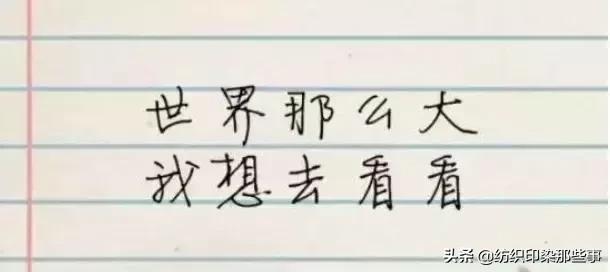 世界那么大
我想去看看
头条 @纺织印染那些事